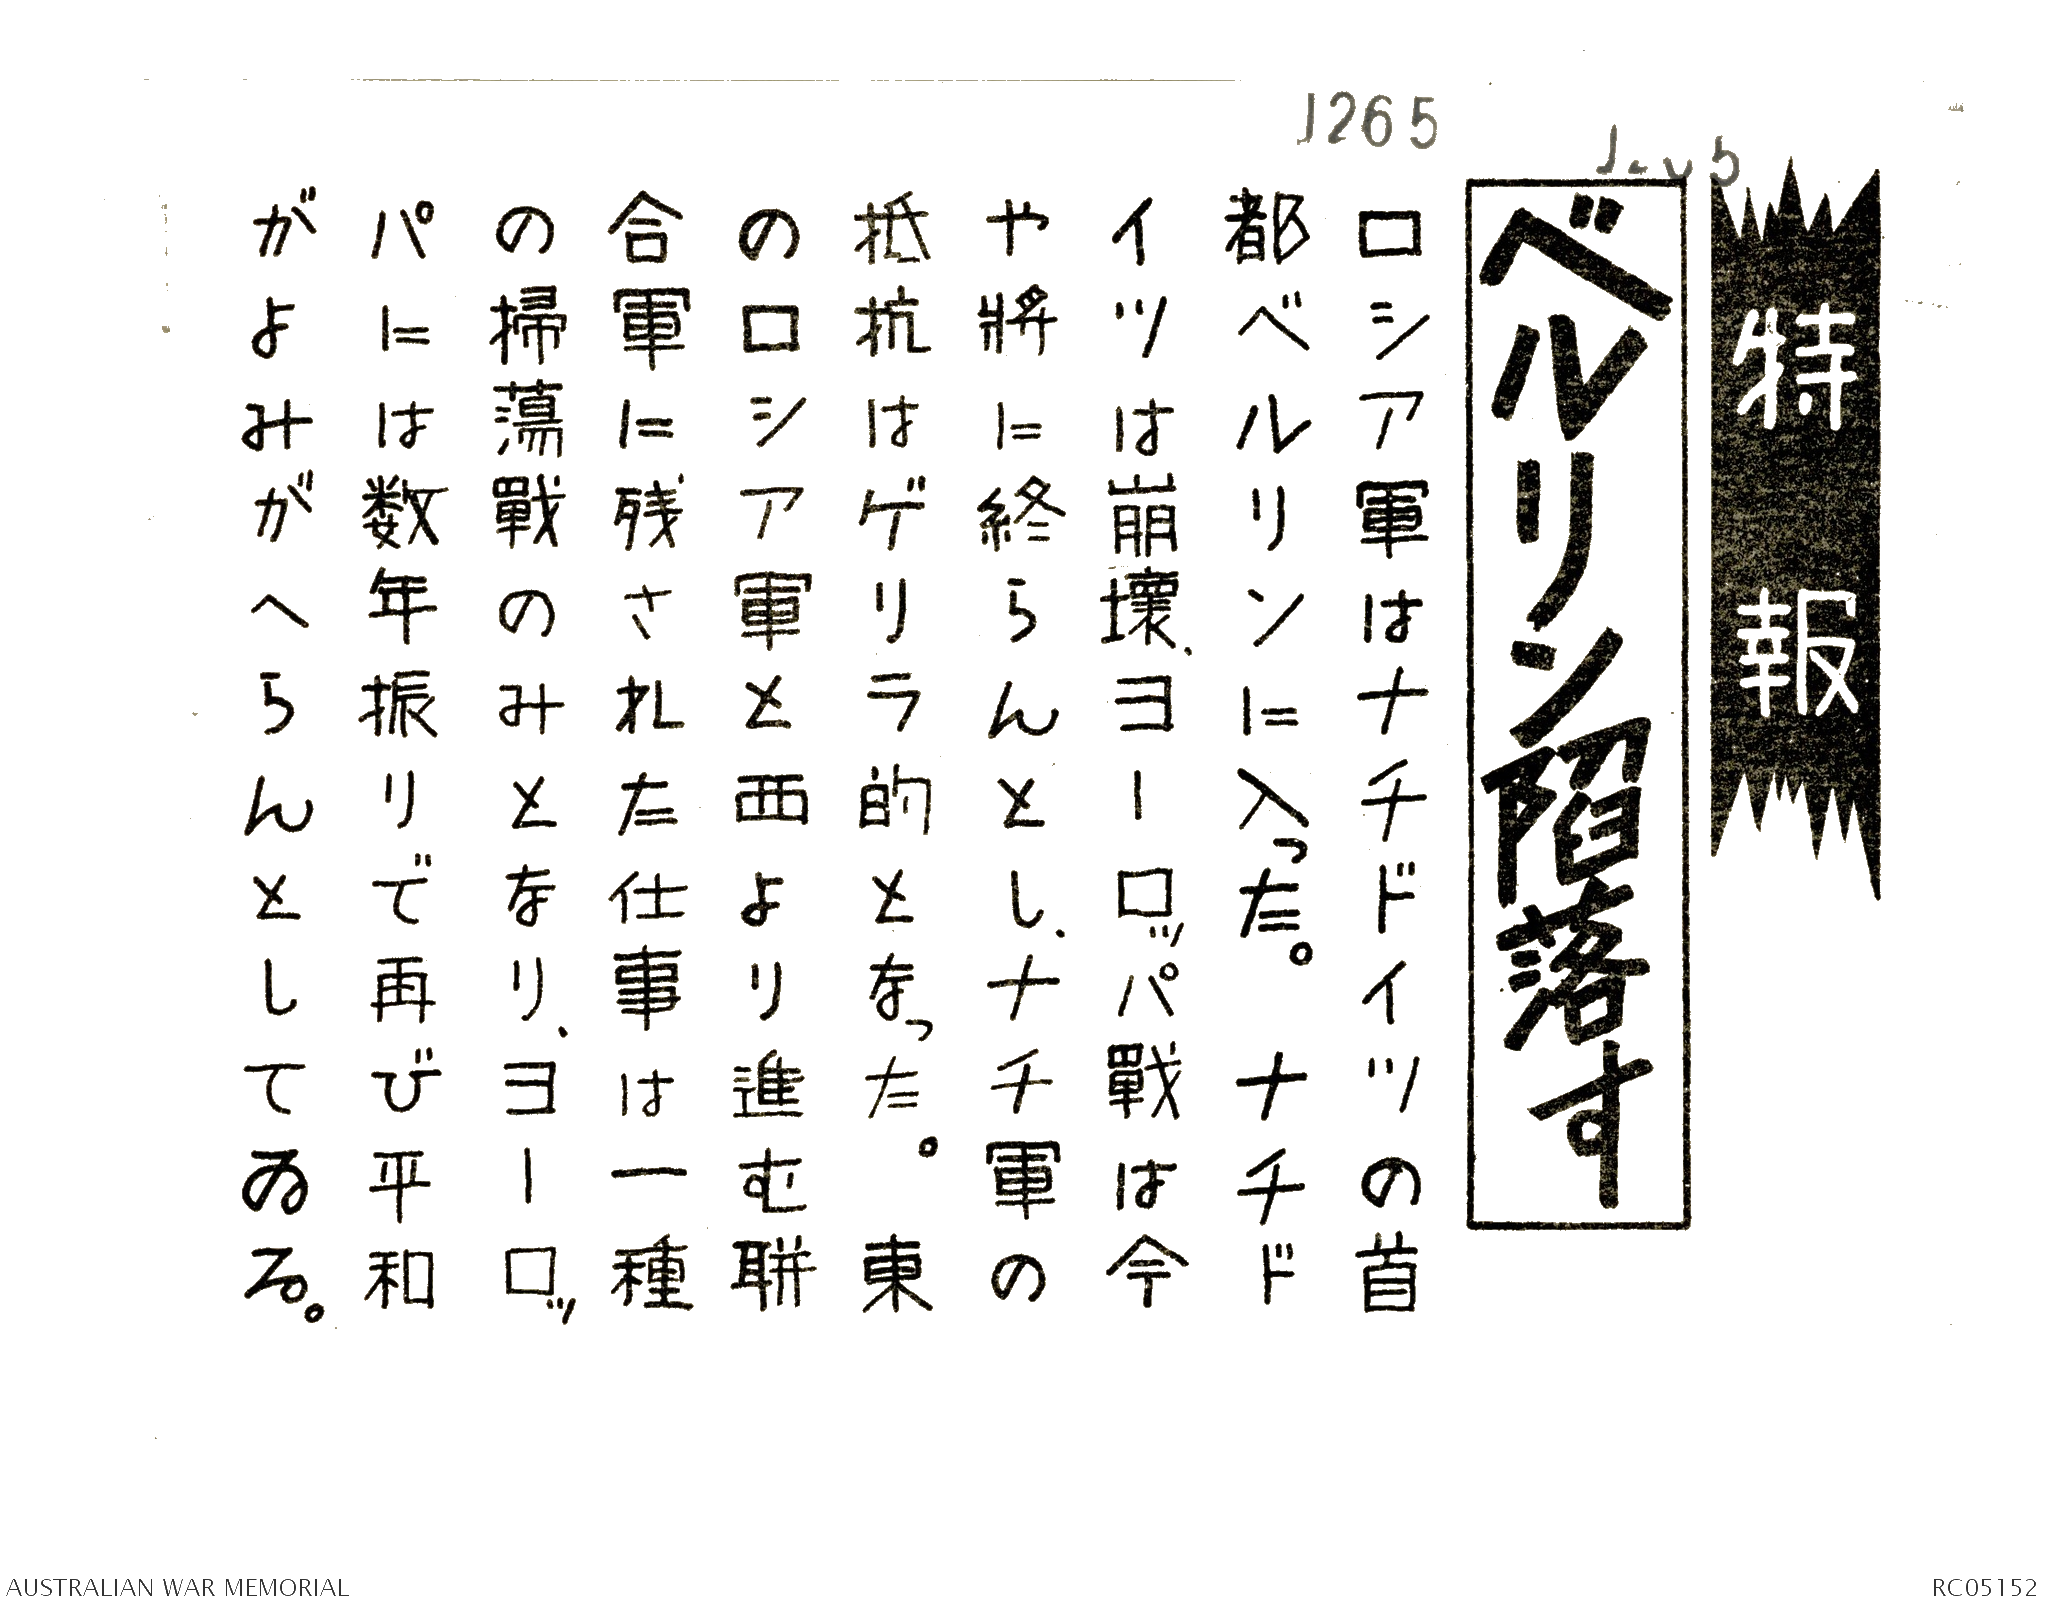 J265
特報
ベルリン陥落す
ロシア軍はナチドイツの首
都ベルリンに入った。ナチド
イツは崩壞、ヨーロッパ戰は今
や將に終らんとし、ナチ軍の
抵抗はゲリラ的となった。東
のロシア軍と西より進む聨
合軍に残された仕事は一種
の掃蕩戰のみとなり、ヨーロッ
パには数年振りで再び平和
がよみがへらんとしてゐる。
AUSTRALIAN WAR MEMORIAL
RC05152